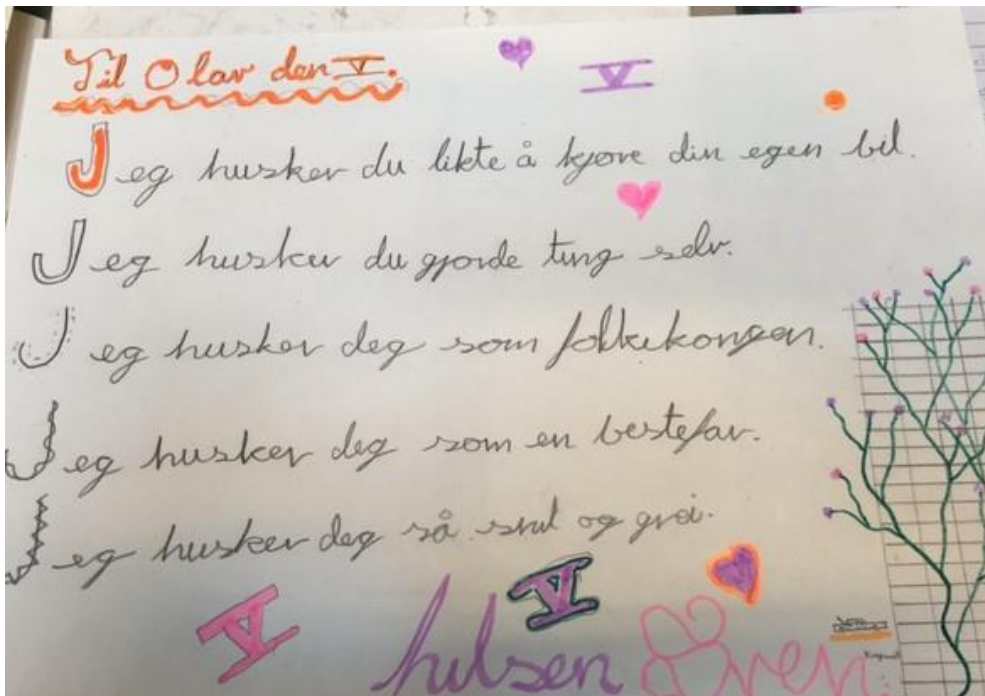 Til Olav den V.
V
Jeg husker du likte å kjøre din egen bil.
Jeg husker du gjorde ting selv.
Jeg husker deg som folkekongen.
Jeg husker deg som en bestefar.
Jeg husker deg så snil og grei.
V
V
hilsen